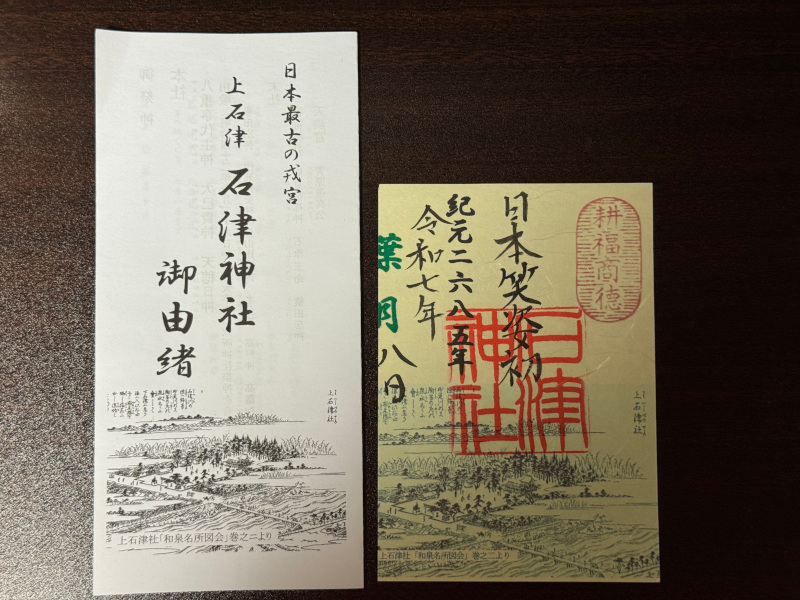 日本最古の戎宮
上石津
石津神社
御由緒
上石津社
上石津社「和泉名所図会」巻之二より
耕福商徳
日本笑姿初
紀元二六八五年
令和七年
葉月八日
石津
神社
上石津社
上石津社「和泉名所図会」巻之二より